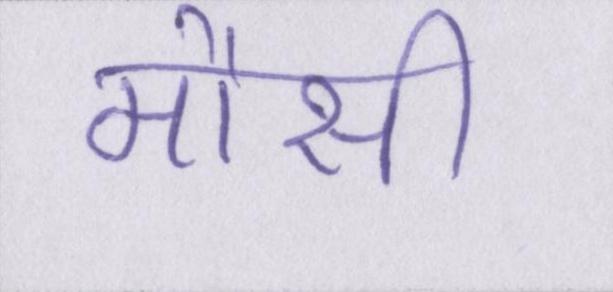 मौसी